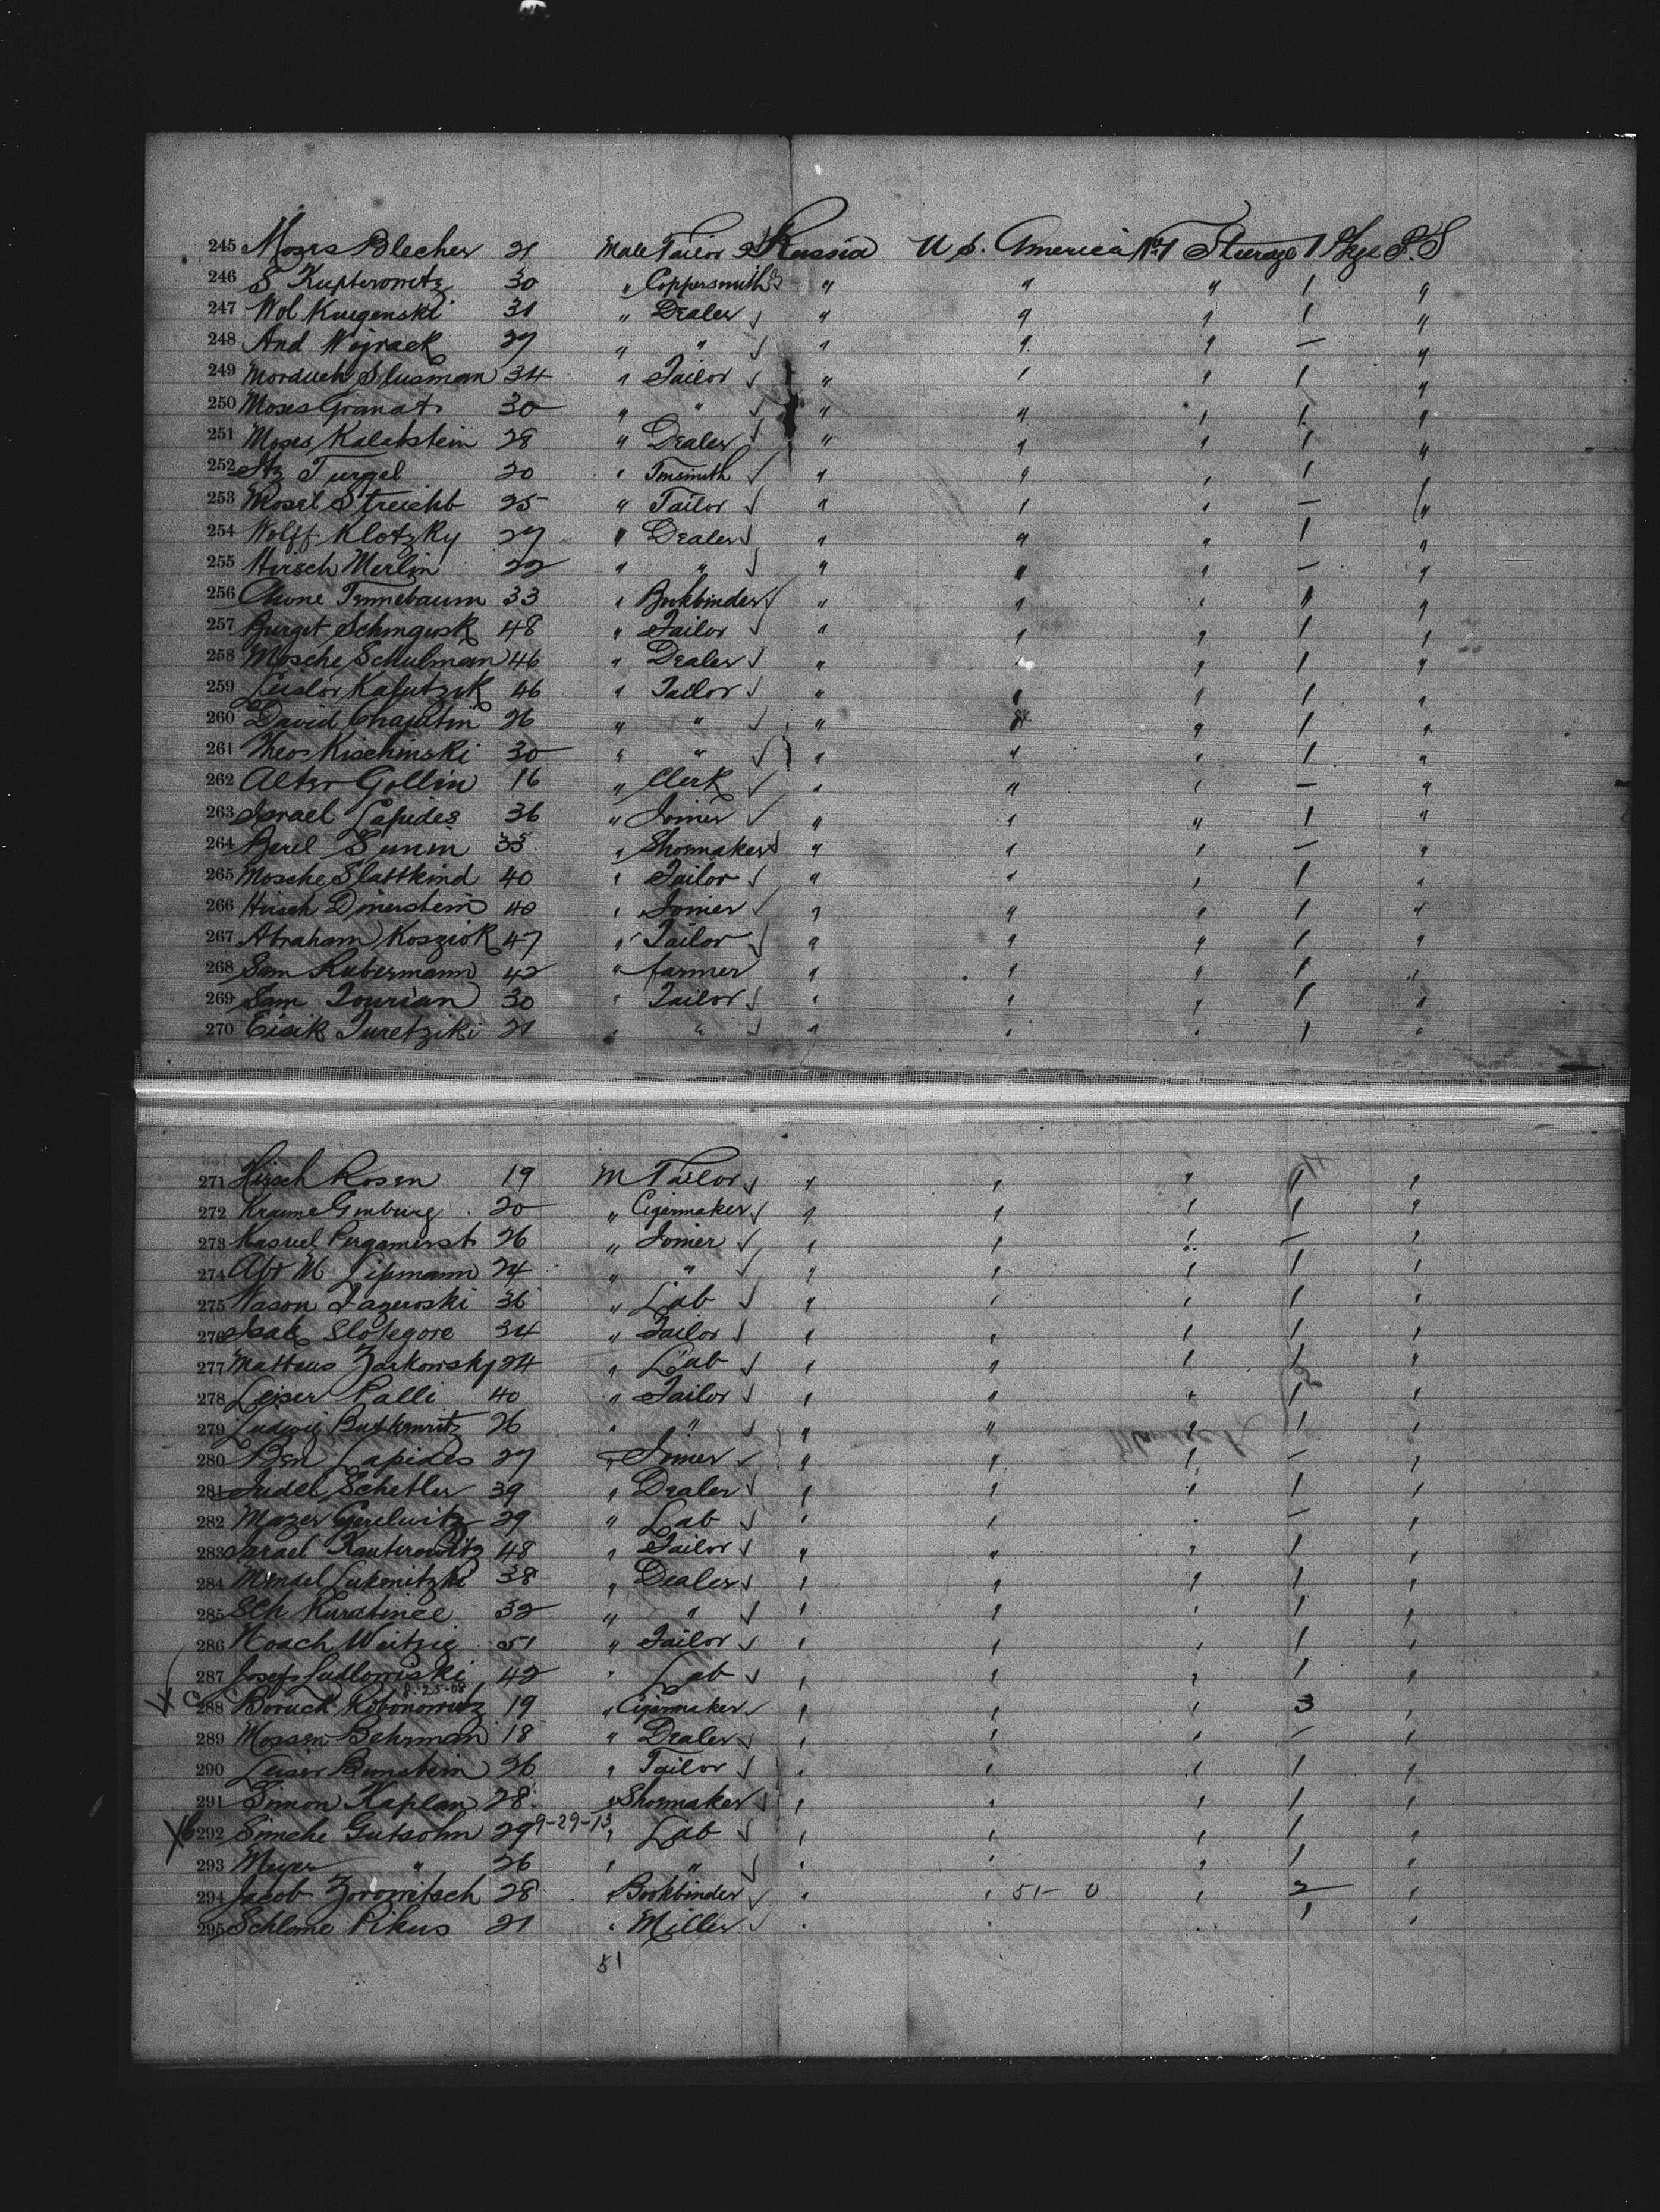 245 Moses Blecher 21 Male Tailor Russia U S. America No 1 Steerage 1 Pkge P.S
246 S Kupferowitz 30 " Coppersmith " " " 1 "
247 Wol 31 " Dealer " " " 1 "
248 And 27 " " " " " — "
249 Morduch Slusman 34 " Tailor " " " 1 "
250 Moses Granat 30 " " " " " 1 "
251 Moses Kalatstein 28 " Dealer " " " 1 "
252 Turgel 20 " Tinsmith " " " 1 "
253 Streichb 25 " Tailor " " " — "
254 Wolff Klotzky 27 " Dealer " " " 1 "
255 Hirsch Merlin 22 " " " " " — "
256 Chone Tennebaum 33 " Bookbinder " " " " "
257 48 " Tailor " " " 1 "
258 Mosche Schulman 46 " Dealer " " " 1 "
259 46 " Tailor " " " 1 "
260 David 26 " " " " " 1 "
261 Kischinski 30 " " " " " 1 "
262 Alter Gollin 16 " Clerk " " " — "
263 Israel Lapides 36 " Joiner " " " 1 "
264 Berel Sunin 35 " Shoemaker " " " — "
265 Mosche Slattkind 40 " Tailor " " " 1 "
266 Hirsch Dinerstein 40 " Joiner " " " 1 "
267 Abraham Kosziok 47 " Tailor " " " 1 "
268 Sam Rubermann 42 " farmer " " " 1 "
269 Sam Tourian 30 " Tailor " " " 1 "
270 Eisik Turetziki 21 " " " " " 1 "
271 Hirsch Rosen 19 M Tailor " " " 1 "
272 Ginburg 20 " Cigarmaker " " " 1 "
273 Kasriel Pergamenst 26 " Joiner " " " — "
274 Abr M Lipmann 24 " " " " " 1 "
275 36 " Lab " " " 1 "
276 Isak Slotegore 34 " Tailor " " " 1 "
277 Mattaus Zarkowsky 24 " Lab " " " 1 "
278 Leiser Palli 40 " Tailor " " " 1 "
279 Ludwig Butkewitz 26 " " " " " 1 "
280 Ben Lapides 27 " Joiner " " " — "
281 Judel Schetler 39 " Dealer " " " 1 "
282 29 " Lab " " " — "
283 Israel Kanterowitz 48 " Tailor " " " 1 "
284 Mendel Lukenitzki 38 " Dealer " " " 1 "
285 32 " " " " " 1 "
286 Noach 51 " Tailor " " " 1 "
287 Josef Ludlowiski 42 " Lab " " " 1 "
8-25-08
288 Boruch Robonowitz 19 " Cigarmaker " " " 3 "
289 Behrman 18 " Dealer " " " — "
290 Leiser 26 " Tailor " " " 1 "
291 Simon Kaplan 28 " Shoemaker " " " 1 "
292 Simche Gutsohn 29 9-29-13 " Lab " " " 1 "
293 Meyer " 26 " " " " " 1 "
294 Jacob Zorowitsch 28 " Bookbinder " " 51- 0 " 2 "
295 Schlome Pikus 21 " Miller " " " 1 "
51